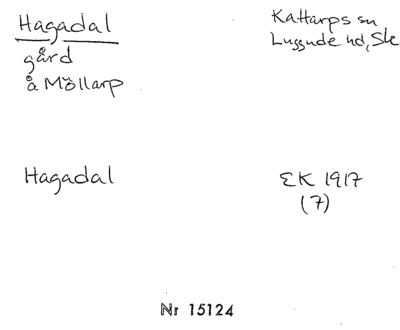 Hagadal
gård
å Möllarp
Kattarps sn
Luggude hd, Sk
Hagadal
EK 1917
(7)
Nr 15124